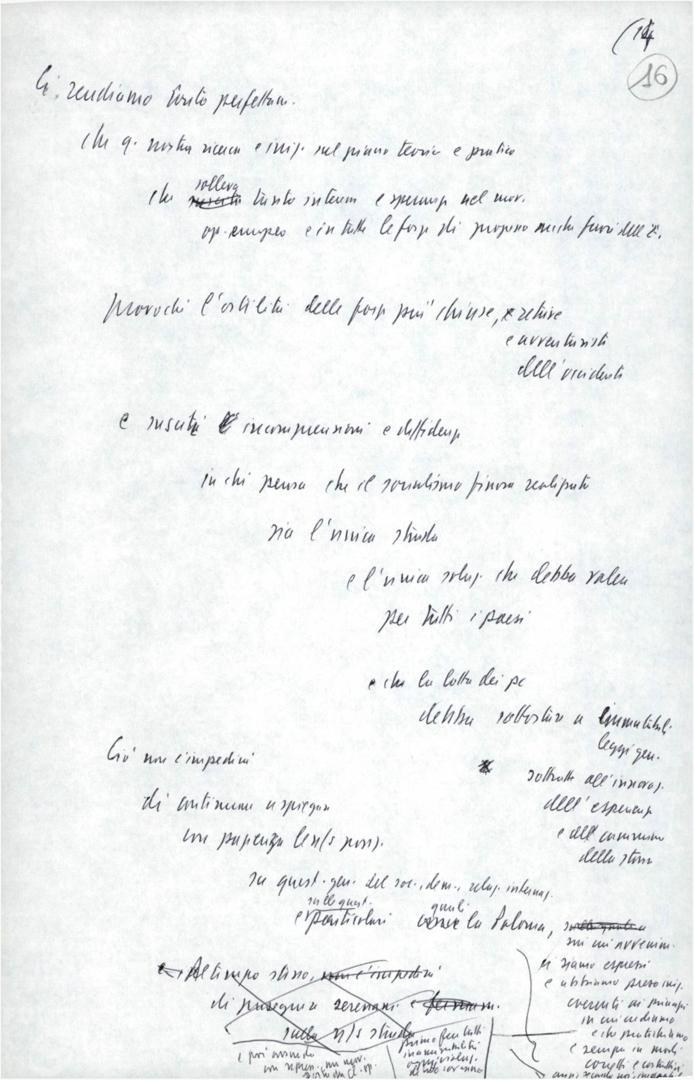 (14
16
Ci rendiamo conto perfettam.
che q. nostra ricerca e iniz. sul piano teorico e pratico
solleva
che tanto interesse e speranze nel mov.
op. europeo e in tutte le forze di progresso anche fuori dell'E.
provochi l'ostilità delle forze più chiuse, retrive
e avventuriste
dell'occidente
e susciti incomprensioni e diffidenze
in chi pensa che il socialismo finora realizzato
sia l'unica strada
e l'unica soluz. che debba valere
per tutti i paesi
e che la lotta dei pc
debba sottostare a immutabili
leggi gen.
sottratte all'innovaz.
dell'esperienza
e del cammino
della storia
Ciò non c'impedirà
di continuare a spiegare
con pazienza le n/s posiz.
su quest. gen. del soc., dem., relaz. internaz.
sulle quest.
e particolari quali la Polonia,
sui cui avvenim.
ci siamo espressi
e abbiamo preso iniz.
coerenti ai principi
in cui crediamo
e che pratichiamo
e sempre in modi
corretti e costruttivi
Al tempo stesso, non c'impedirà
di proseguire serenam. e
sulla n/s strada